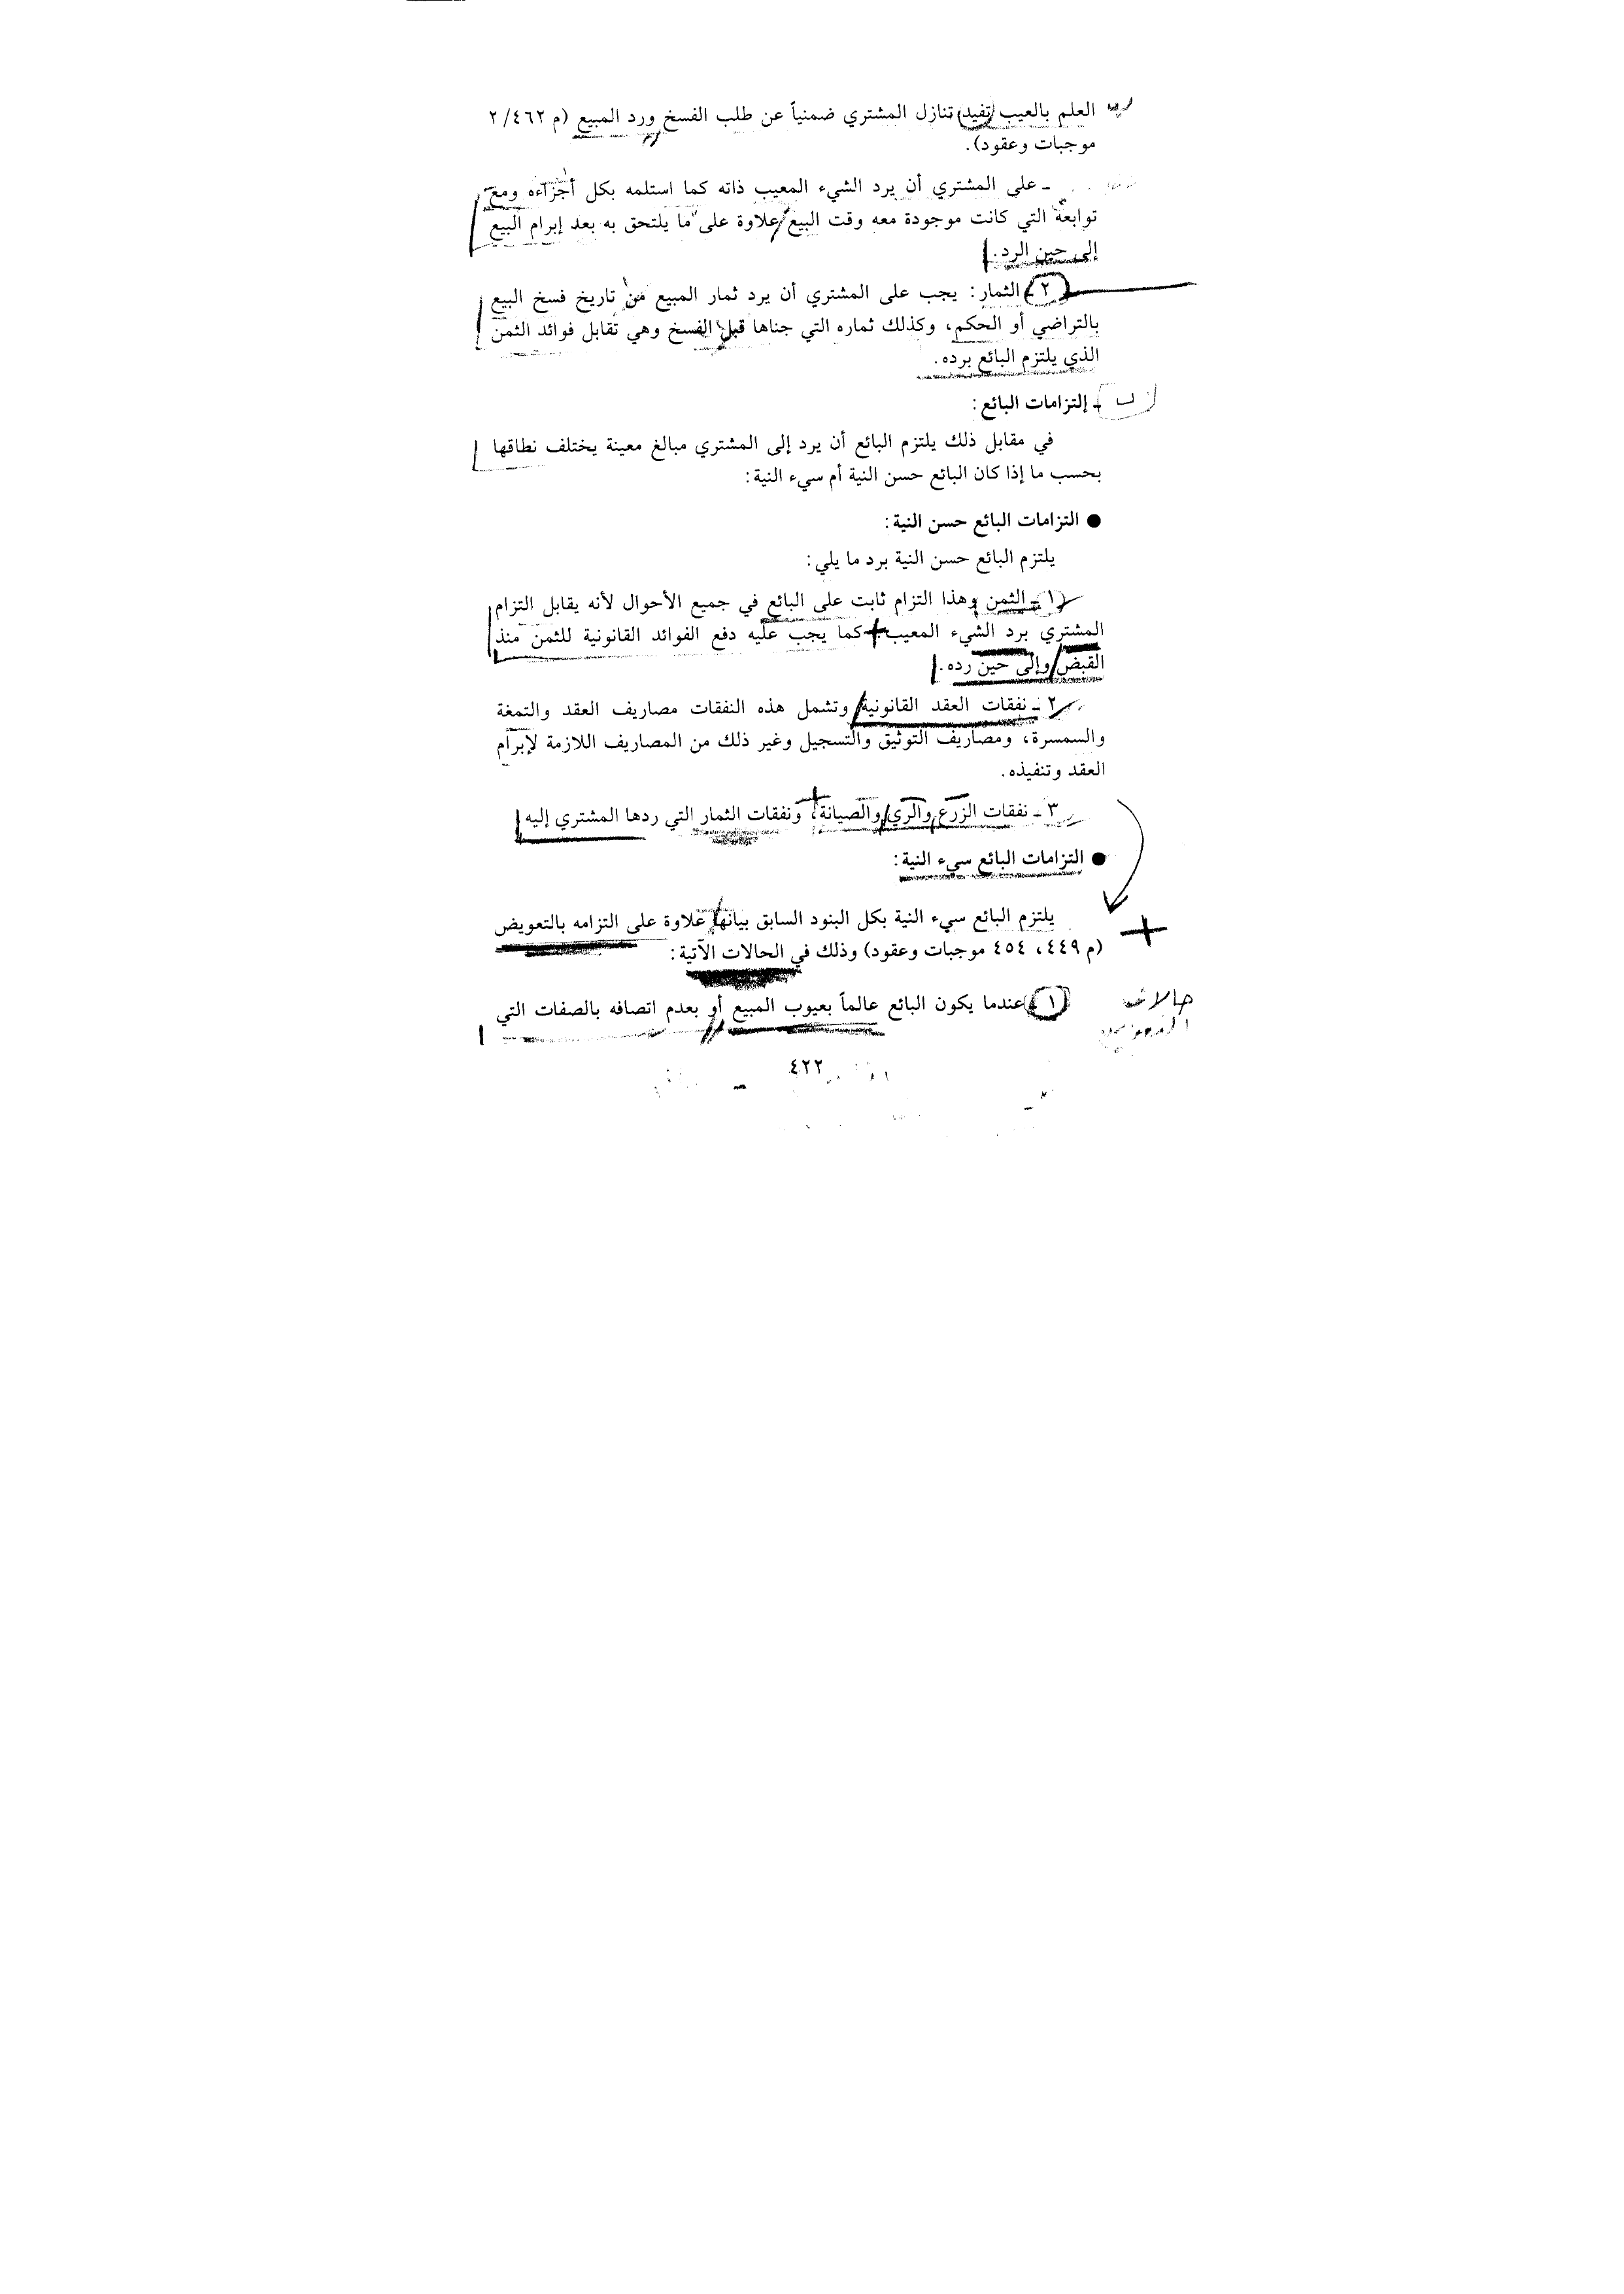 العلم بالعيب (تفيد) تنازل المشتري ضمنياً عن طلب الفسخ ورد المبيع (م ٤٦٢/ ٢
موجبات وعقود).
ـ على المشتري أن يرد الشيء المعيب ذاته كما استلمه بكل أجزاءه ومع
توابعه التي كانت موجودة معه وقت البيع علاوة على ما يلتحق به بعد إبرام البيع
إلى حين الرد.
٢ ـ الثمار: يجب على المشتري أن يرد ثمار المبيع من تاريخ فسخ البيع
بالتراضي أو الحكم، وكذلك ثماره التي جناها قبل الفسخ وهي تقابل فوائد الثمن
الذي يلتزم البائع برده.
ب ـ إلتزامات البائع:
في مقابل ذلك يلتزم البائع أن يرد إلى المشتري مبالغ معينة يختلف نطاقها
بحسب ما إذا كان البائع حسن النية أم سيء النية:
● التزامات البائع حسن النية:
يلتزم البائع حسن النية برد ما يلي:
١ ـ الثمن وهذا التزام ثابت على البائع في جميع الأحوال لأنه يقابل التزام
المشتري برد الشيء المعيب + كما يجب عليه دفع الفوائد القانونية للثمن منذ
القبض وإلى حين رده.
٢ ـ نفقات العقد القانونية وتشمل هذه النفقات مصاريف العقد والتمغة
والسمسرة، ومصاريف التوثيق والتسجيل وغير ذلك من المصاريف اللازمة لإبرام
العقد وتنفيذه.
٣ ـ نفقات الزرع والري والصيانة، ونفقات الثمار التي ردها المشتري إليه
● التزامات البائع سيء النية:
يلتزم البائع سيء النية بكل البنود السابق بيانها علاوة على التزامه بالتعويض
(م ٤٤٩، ٤٥٤ موجبات وعقود) وذلك في الحالات الآتية:
+
١ ـ عندما يكون البائع عالماً بعيوب المبيع أو بعدم اتصافه بالصفات التي
حالات
التعويض
٤٢٢